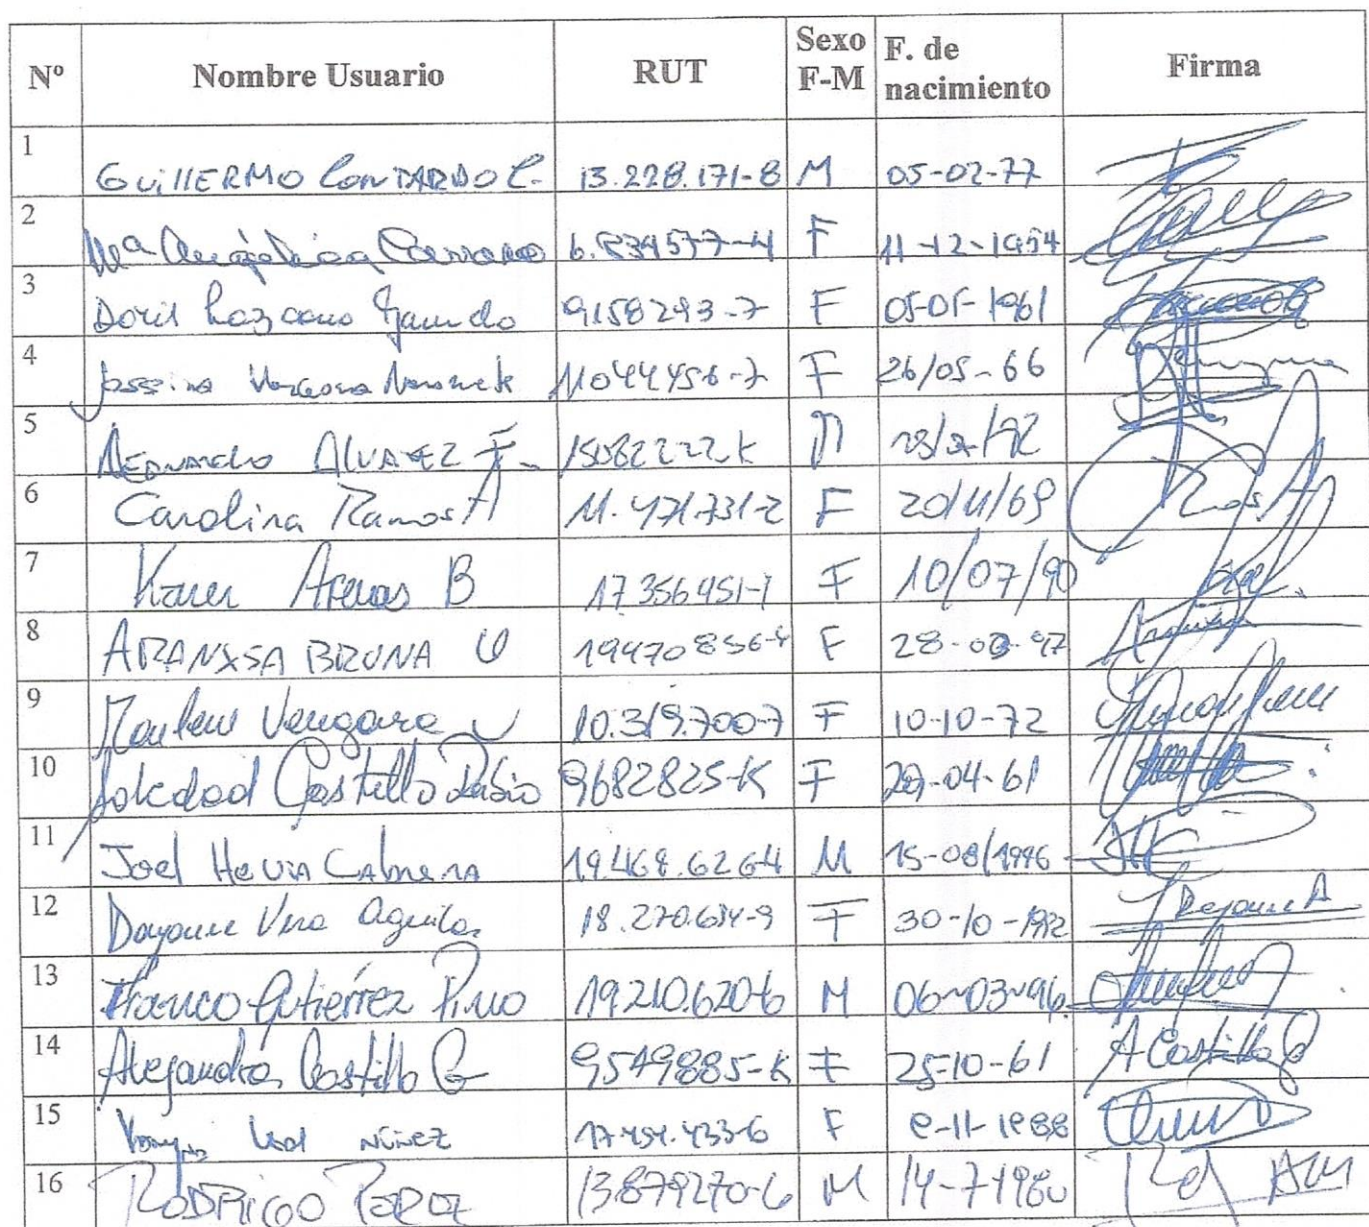 Nº Nombre Usuario RUT Sexo F-M F. de nacimiento Firma
1 GUillERMO CONTARDO C. 13.228.171-8 M 05-02-77
2 Mª Angélica 6.834577-4 F 11-12-1954
3 Doris Lazcano 9158293-7 F 05-05-1961
4 1104445-6-7 F 26/05-66
5 ALVAREZ F. 15082222-K M
6 Carolina Ramos A 11.471.731-2 F 20/11/69 Ramos A
7 Karen Arenas B 17356451-1 F 10/07/90
8 ARANXSA BRUNA U 19470856-4 F 28-02-97
9 Vergara V 10.319.700-7 F 10-10-72
10 Soledad Castillo Rubio 9682825-K F 29-04-61
11 Joel Hevia Cabrera 19.468.626-4 M 15-08/1996
12 Dayane Vera Aguila 18.270.634-9 F 30-10-1992 Dayane A
13 Franco Gutiérrez Pino 19.210.620-6 M 06-03-96
14 Alejandra Castillo G 9549885-K F 25-10-61 A Castillo G
15 Núñez 17.454.433-6 F 8-11-1988
16 RODRIGO 13.879270-6 M 14-7-1980